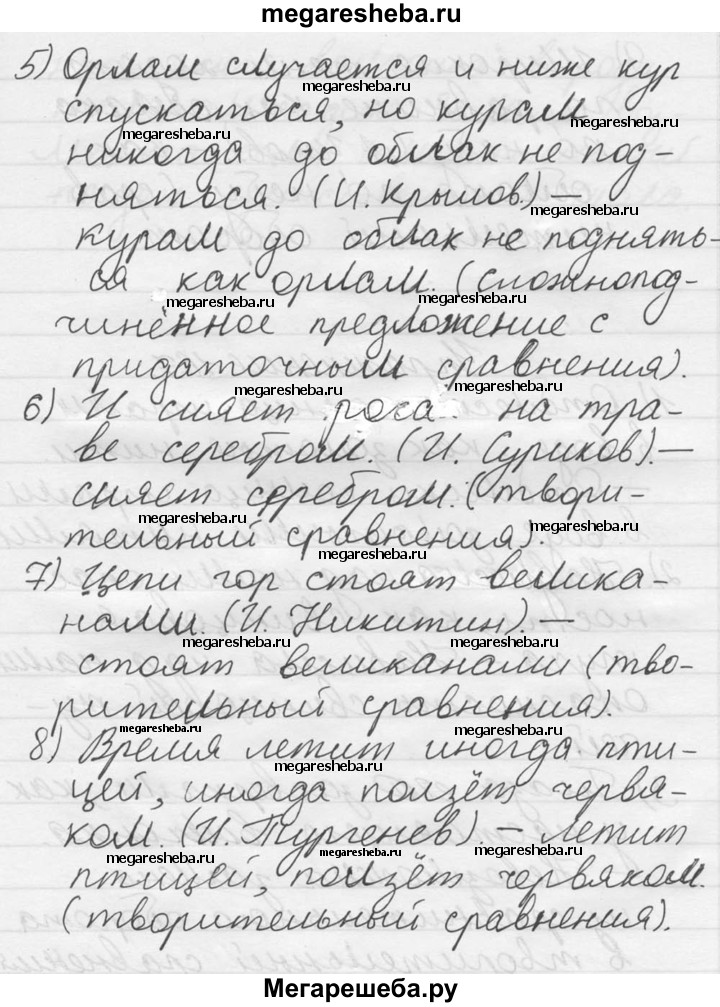 megaresheba.ru
5) Орлам случается и ниже кур
спускаться, но курам
megaresheba.ru megaresheba.ru
никогда до облак не под-
няться. (И. Крылов.) —
megaresheba.ru
курам до облак не поднять-
ся как орлам. (сложнопод-
megaresheba.ru megaresheba.ru
чинённое предложение с
придаточным сравнения).
megaresheba.ru megaresheba.ru
6) И сияет роса на тра-
ве серебром. (И. Суриков). —
megaresheba.ru
сияет серебром. (твори-
megaresheba.ru
тельный сравнения).
megaresheba.ru
7) Цепи гор стоят велика-
нами. (И. Никитин). —
megaresheba.ru megaresheba.ru
стоят великанами (тво-
рительный сравнения).
megaresheba.ru
8) Время летит иногда пти-
megaresheba.ru
цей, иногда ползёт червя-
ком. (И. Тургенев). — летит
megaresheba.ru megaresheba.ru megaresheba.ru
птицей, ползёт червяком.
(творительный сравнения).
megaresheba.ru
Мегарешеба.ру